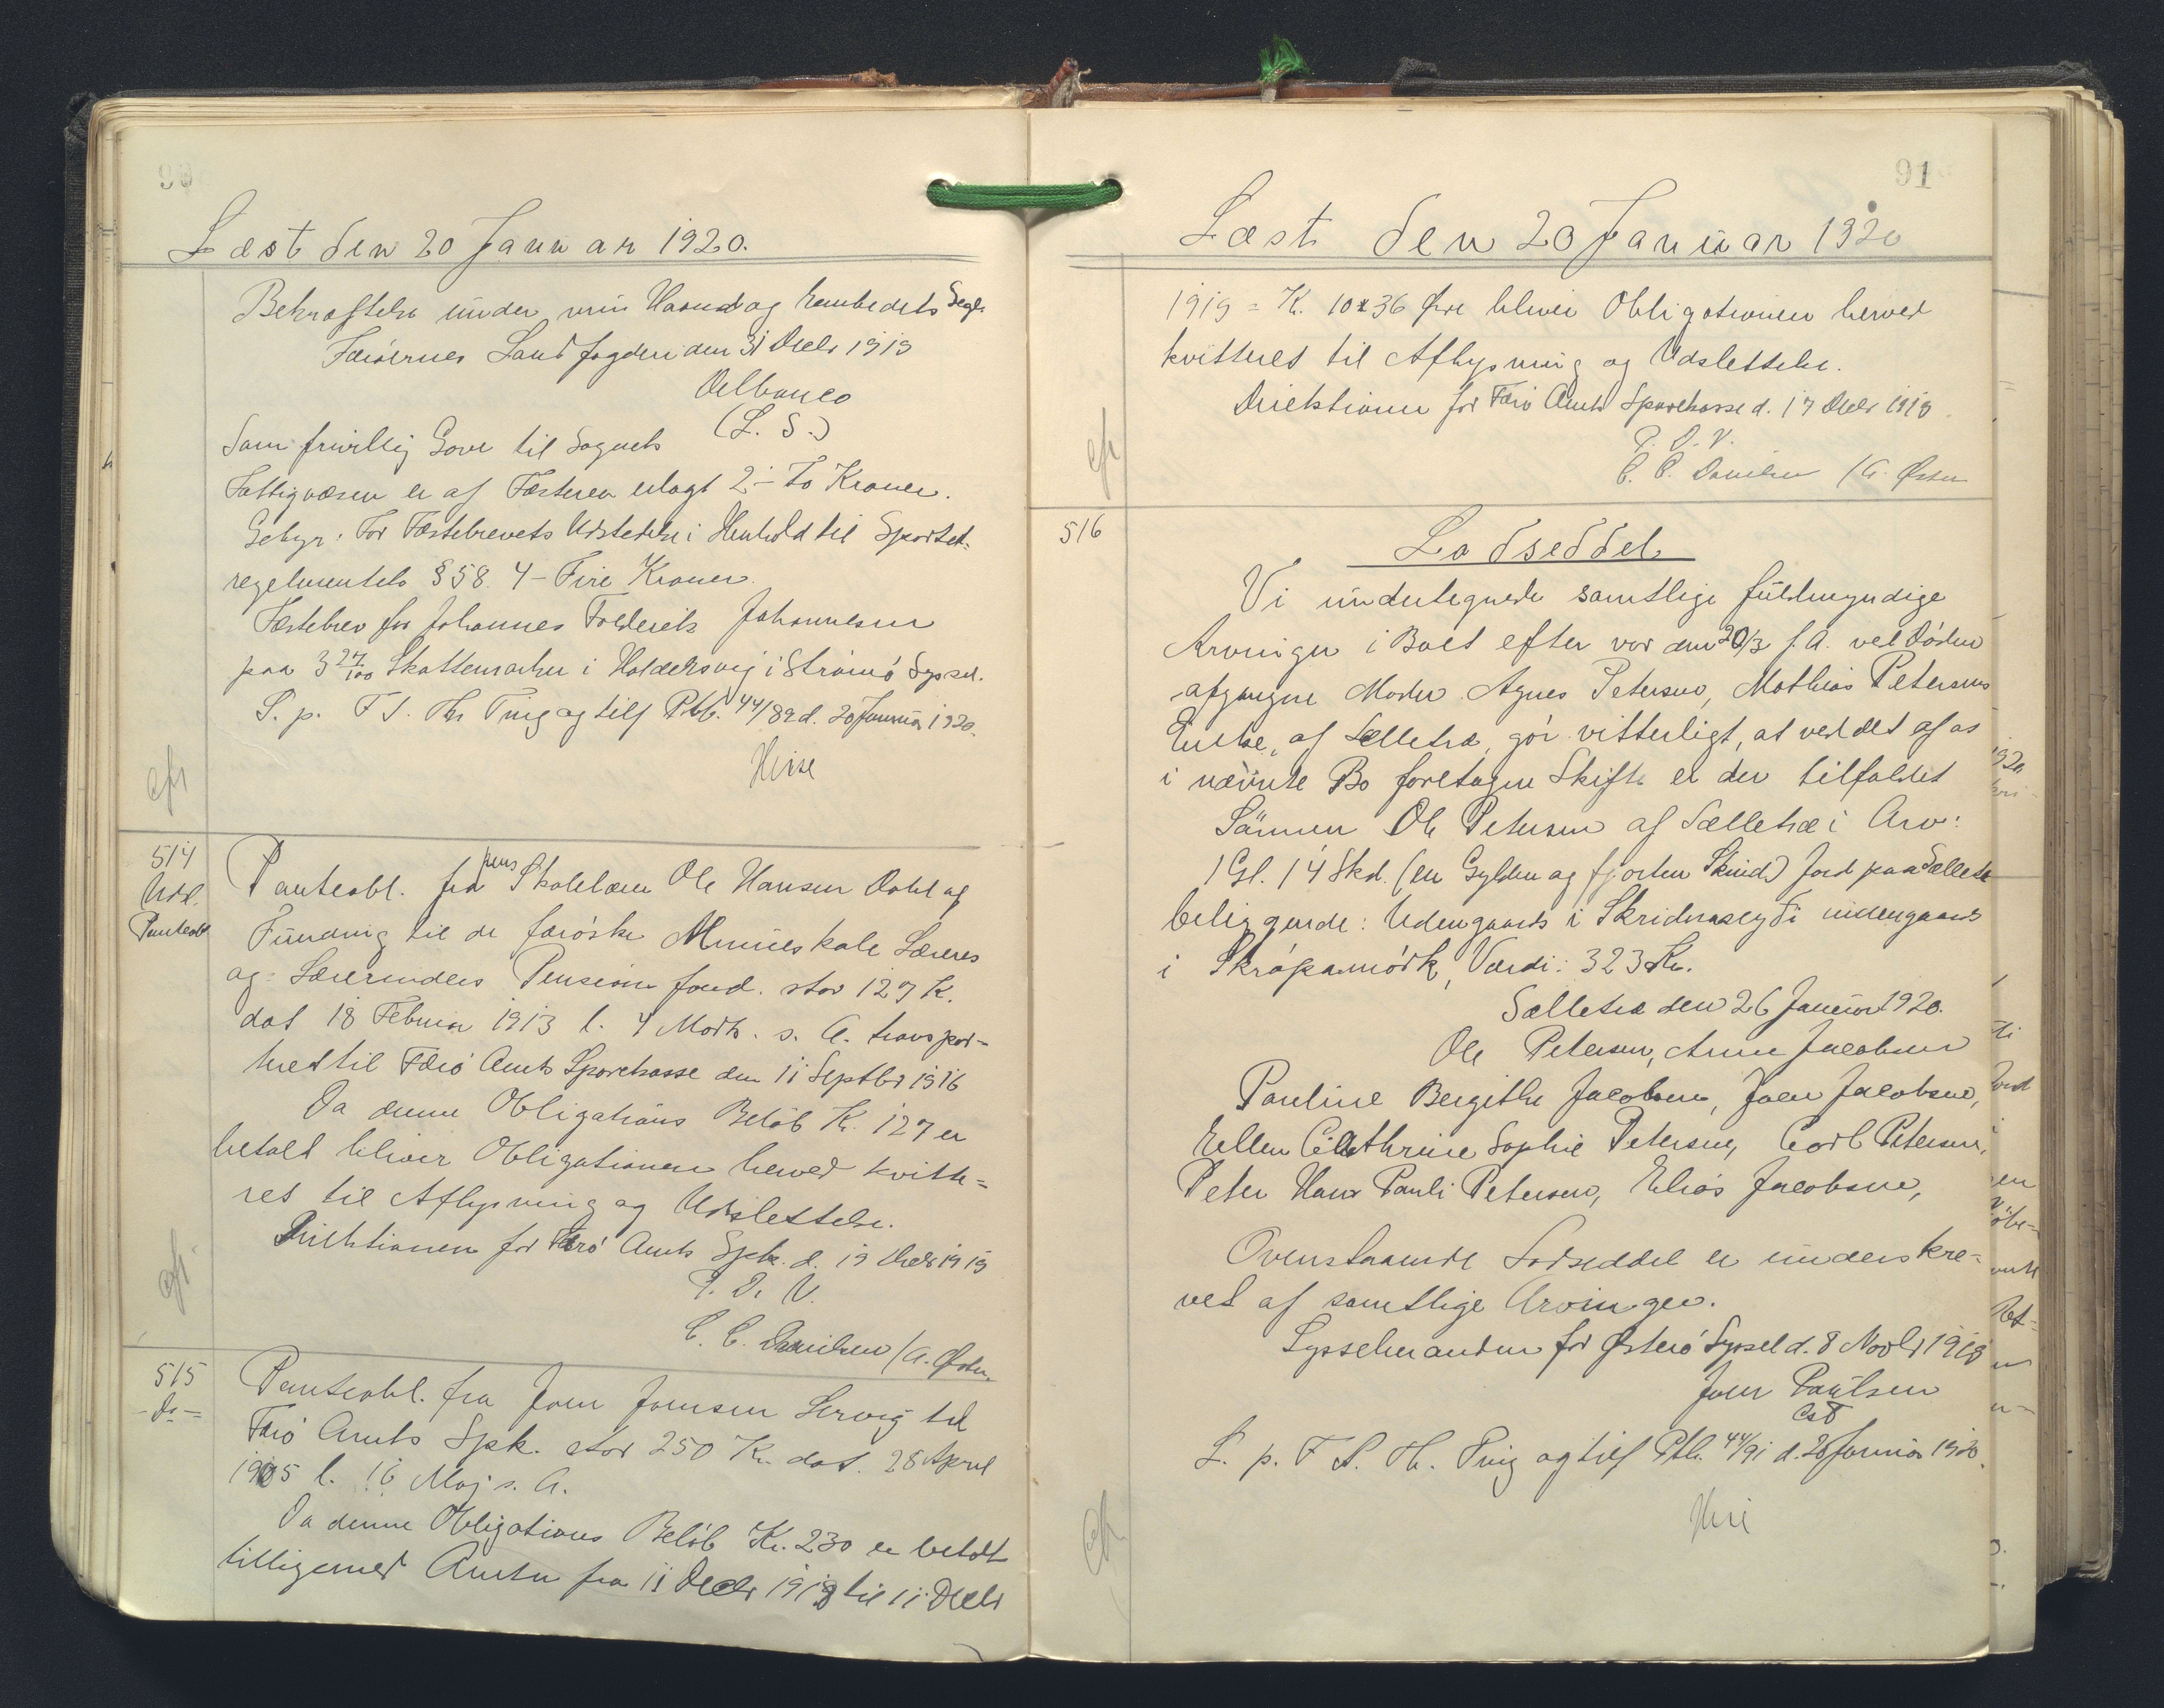 90
Læst den 20 Januar 1920.
Bekræftelse under min Haand og Embedets Segl.
Færöernes Landfogderi den 31 Decbr 1919
Delbanco
(L. S.)
Som frivillig Gave til Sognets
Fattigvæsen er af Fæsteren erlagt 2 – To Kroner.
Gebyr: For Fæstebrevets Udstedelse i Henhold til Sportel-
reglementets § 58. 4 – Fire Kroner.
Fæstebrev for Johannes Frederik Johannesen
paa 3 27/100 Skattemarker i Haldersvig i Strömö Syssel.
L. p. F S. Th Ting og tilf Ptb. 44/89 d. 20 Januar 1920.
cfr
514
Udsl.
Panteobl
Panteobl. fra pens Skolelærer Ole Hansen Dahl af
Funding til de færöske Almueskole Læreres
og Lærerinders Pensions fond. stor 127 K.
dat 18 Februar 1913 l. 4 Marts. s. A. transpor-
teret til Færö Amts Sparekasse den 11 Septbr 1916
Da denne Obligations Belöb K. 127 er
betalt bliver Obligationen herved kvitte-
ret til Aflysning og Udslettelse.
Direktionen for Færö Amts Spk. d. 19 Decbr 1919
P. D. V.
C. C. Danielsen /A. Østen
cfr.
515
- Do -
Panteobl. fra Joen Joensen Lervig til
Færö Amts Spk. stor 250 Kr. dat. 28 April
1905 l. 16 Maj s. A.
Da denne Obligations Belöb Kr. 230 er betalt
tilligemed Renten fra 11 Decbr 1918 til 11 Decbr
91
Læst den 20 Januar 1920
1919 = K. 10 36 Øre bliver Obligationen herved
kvitteret til Aflysning og Udslettelse.
Direktionen for Færö Amts Sparekasse d. 17 Decbr 1919
P. D. V.
C. C. Danielsen /A. Østen
cfr
516
Lodseddel
Vi undertegnede samtlige fuldmyndige
Arvinger i Boet efter vor den 20/3 f. A. ved Döden
afgangne Moder Agnes Petersen, Mathias Petersens
Enke, af Selletræ, gör vitterligt, at ved det af os
i nævnte Bo foretagne Skifte er der tilfaldet
Sönnen Ole Petersen af Selletræ i Arv:
1 Gl. 14 Skd. (en Gylden og fjorten Skind) Jord paa Selletræ
beliggende: Udengaards i Skridnaseyði indengaards
i Skrápamörk, Værdi: 323 Kr.
Selletræ den 26 Januar 1920.
Ole Petersen, Anne Jacobsen
Pauline Bergithe Jacobsen, Joen Jacobsen,
Ellen Cathrine Sophie Petersen, Carl Petersen,
Peter Hans Pauli Petersen, Elias Jacobsen,
Ovenstaaende Lodseddel er underskre-
vet af samtlige Arvinger.
Sysselmanden for Østerö Syssel d. 8 Novbr 1919
Joen Poulsen
cst
L. p. F S. Th. Ting og tilf Ptb. 44/91 d. 20 Januar 1920.
cfr